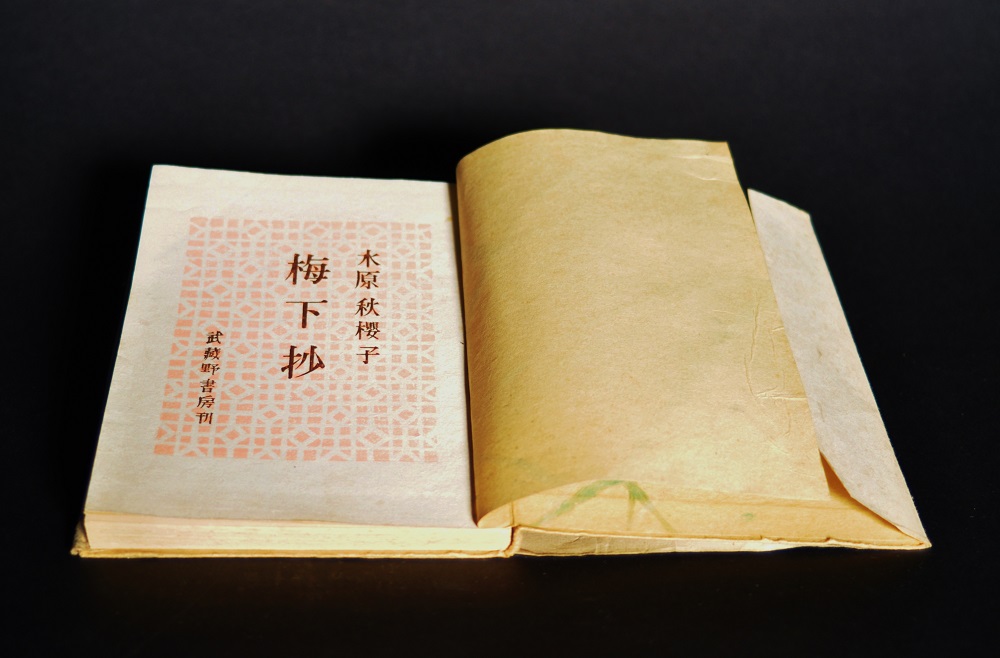 水原秋櫻子
梅下抄
武藏野書房刊